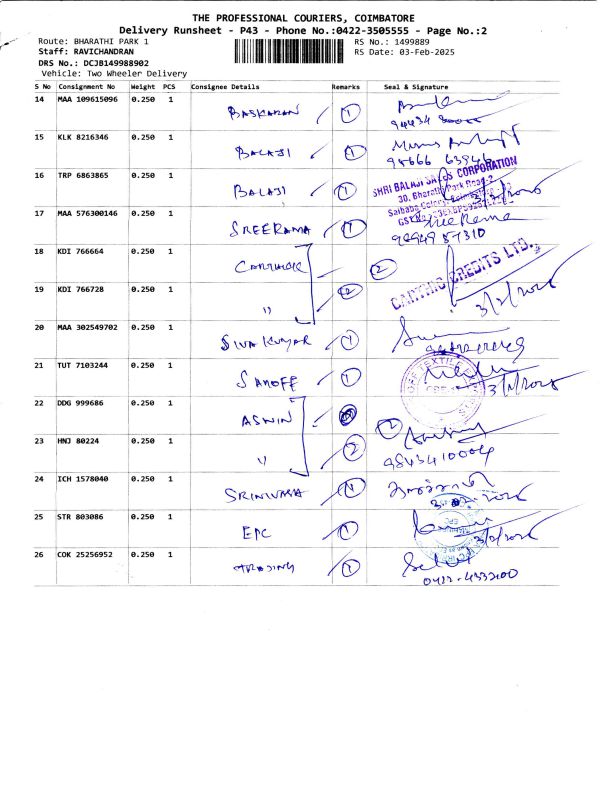 THE PROFESSIONAL COURIERS, COIMBATORE
Delivery Runsheet - P43 - Phone No.:0422-3505555 - Page No.:2
Route: BHARATHI PARK 1 RS No.: 1499889
Staff: RAVICHANDRAN RS Date: 03-Feb-2025
DRS No.: DCJB149988902
Vehicle: Two Wheeler Delivery
S No Consignment No Weight PCS Consignee Details Remarks Seal & Signature
14 MAA 109615096 0.250 1
BASKARAN 1
15 KLK 8216346 0.250 1
BALAJI 1
98666 63946
16 TRP 6863865 0.250 1
BALAJI 1
SHRI BALAJI SALES CORPORATION
30, Bharathi Park Road-2
Saibaba Colony
17 MAA 576300146 0.250 1
SREERAMA 1 Sree Rama
18 KDI 766664 0.250 1
2
CARTHIC CREDITS LTD.
19 KDI 766728 0.250 1
" 2
20 MAA 302549702 0.250 1
SIVA KUMAR 1
21 TUT 7103244 0.250 1
1
22 DDG 999686 0.250 1
ASWIN
2
23 HNJ 80224 0.250 1
" 2
9843410004
24 ICH 1578040 0.250 1
SRINIVASA 1
25 STR 803086 0.250 1
EPC 1
26 COK 25256952 0.250 1
TRADING 1
0422-4332100